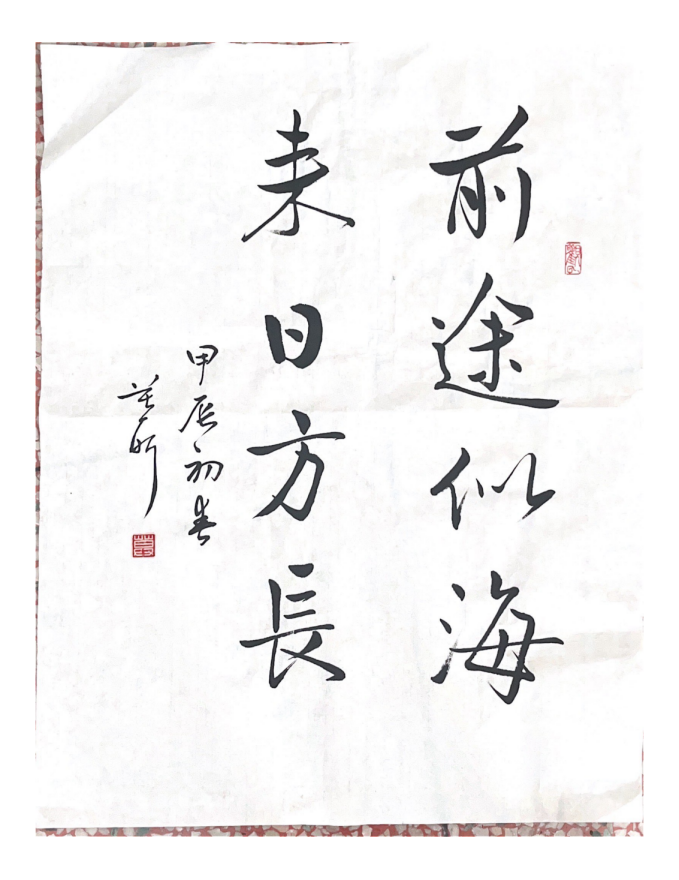 前途似海
来日方長
甲辰初春